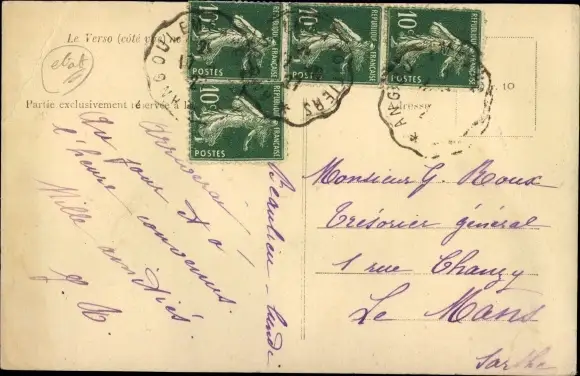 Le Verso (côté vue) ne
Partie exclusivement réservée à la
adresse
10
ANGOULÊME
10c POSTES RÉPUBLIQUE FRANÇAISE
10c POSTES RÉPUBLIQUE FRANÇAISE
10c POSTES RÉPUBLIQUE FRANÇAISE
10c POSTES RÉPUBLIQUE FRANÇAISE
Beaulieu - lundi.
Arriverai
au jour et à
l'heure convenus.
Mille amitiés.
G. R.
Monsieur G. Roux
Trésorier général
1 rue Chanzy
Le Mans
Sarthe